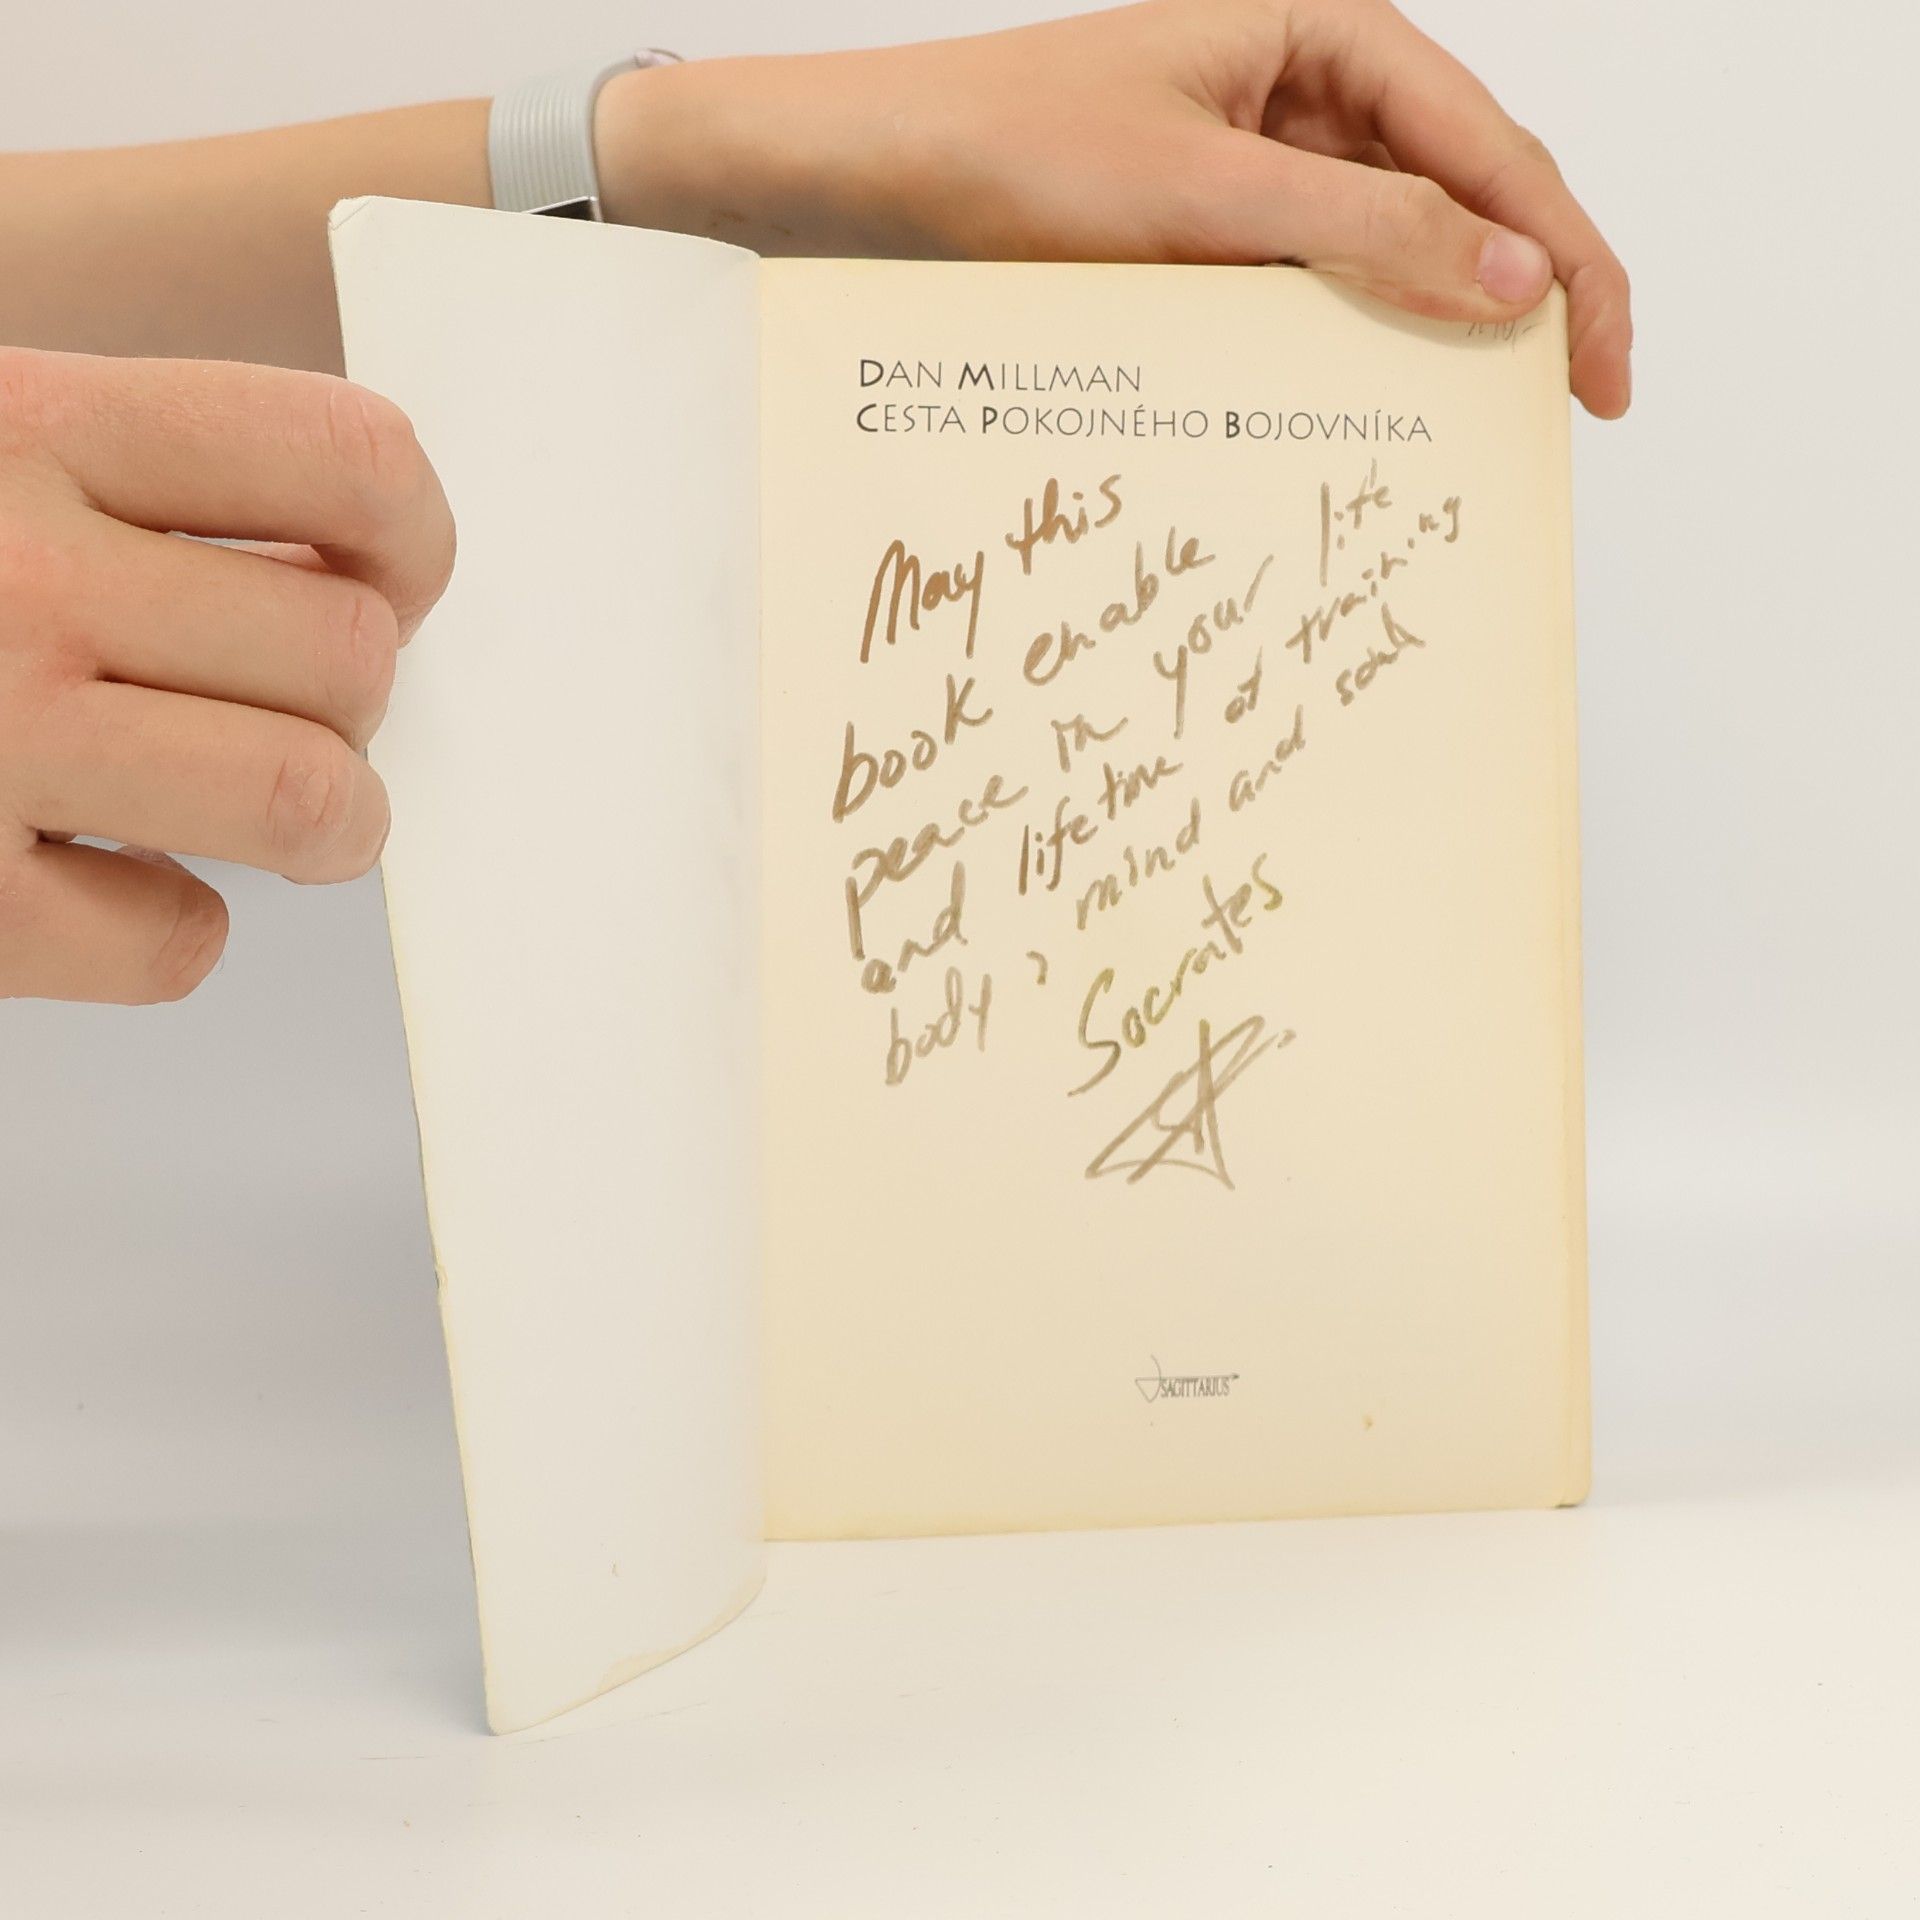 DAN MILLMAN
CESTA POKOJNÉHO BOJOVNÍKA
May this
book enable
peace in your life
and lifetime of training
body, mind and soul
Socrates
SAGITTARIUS